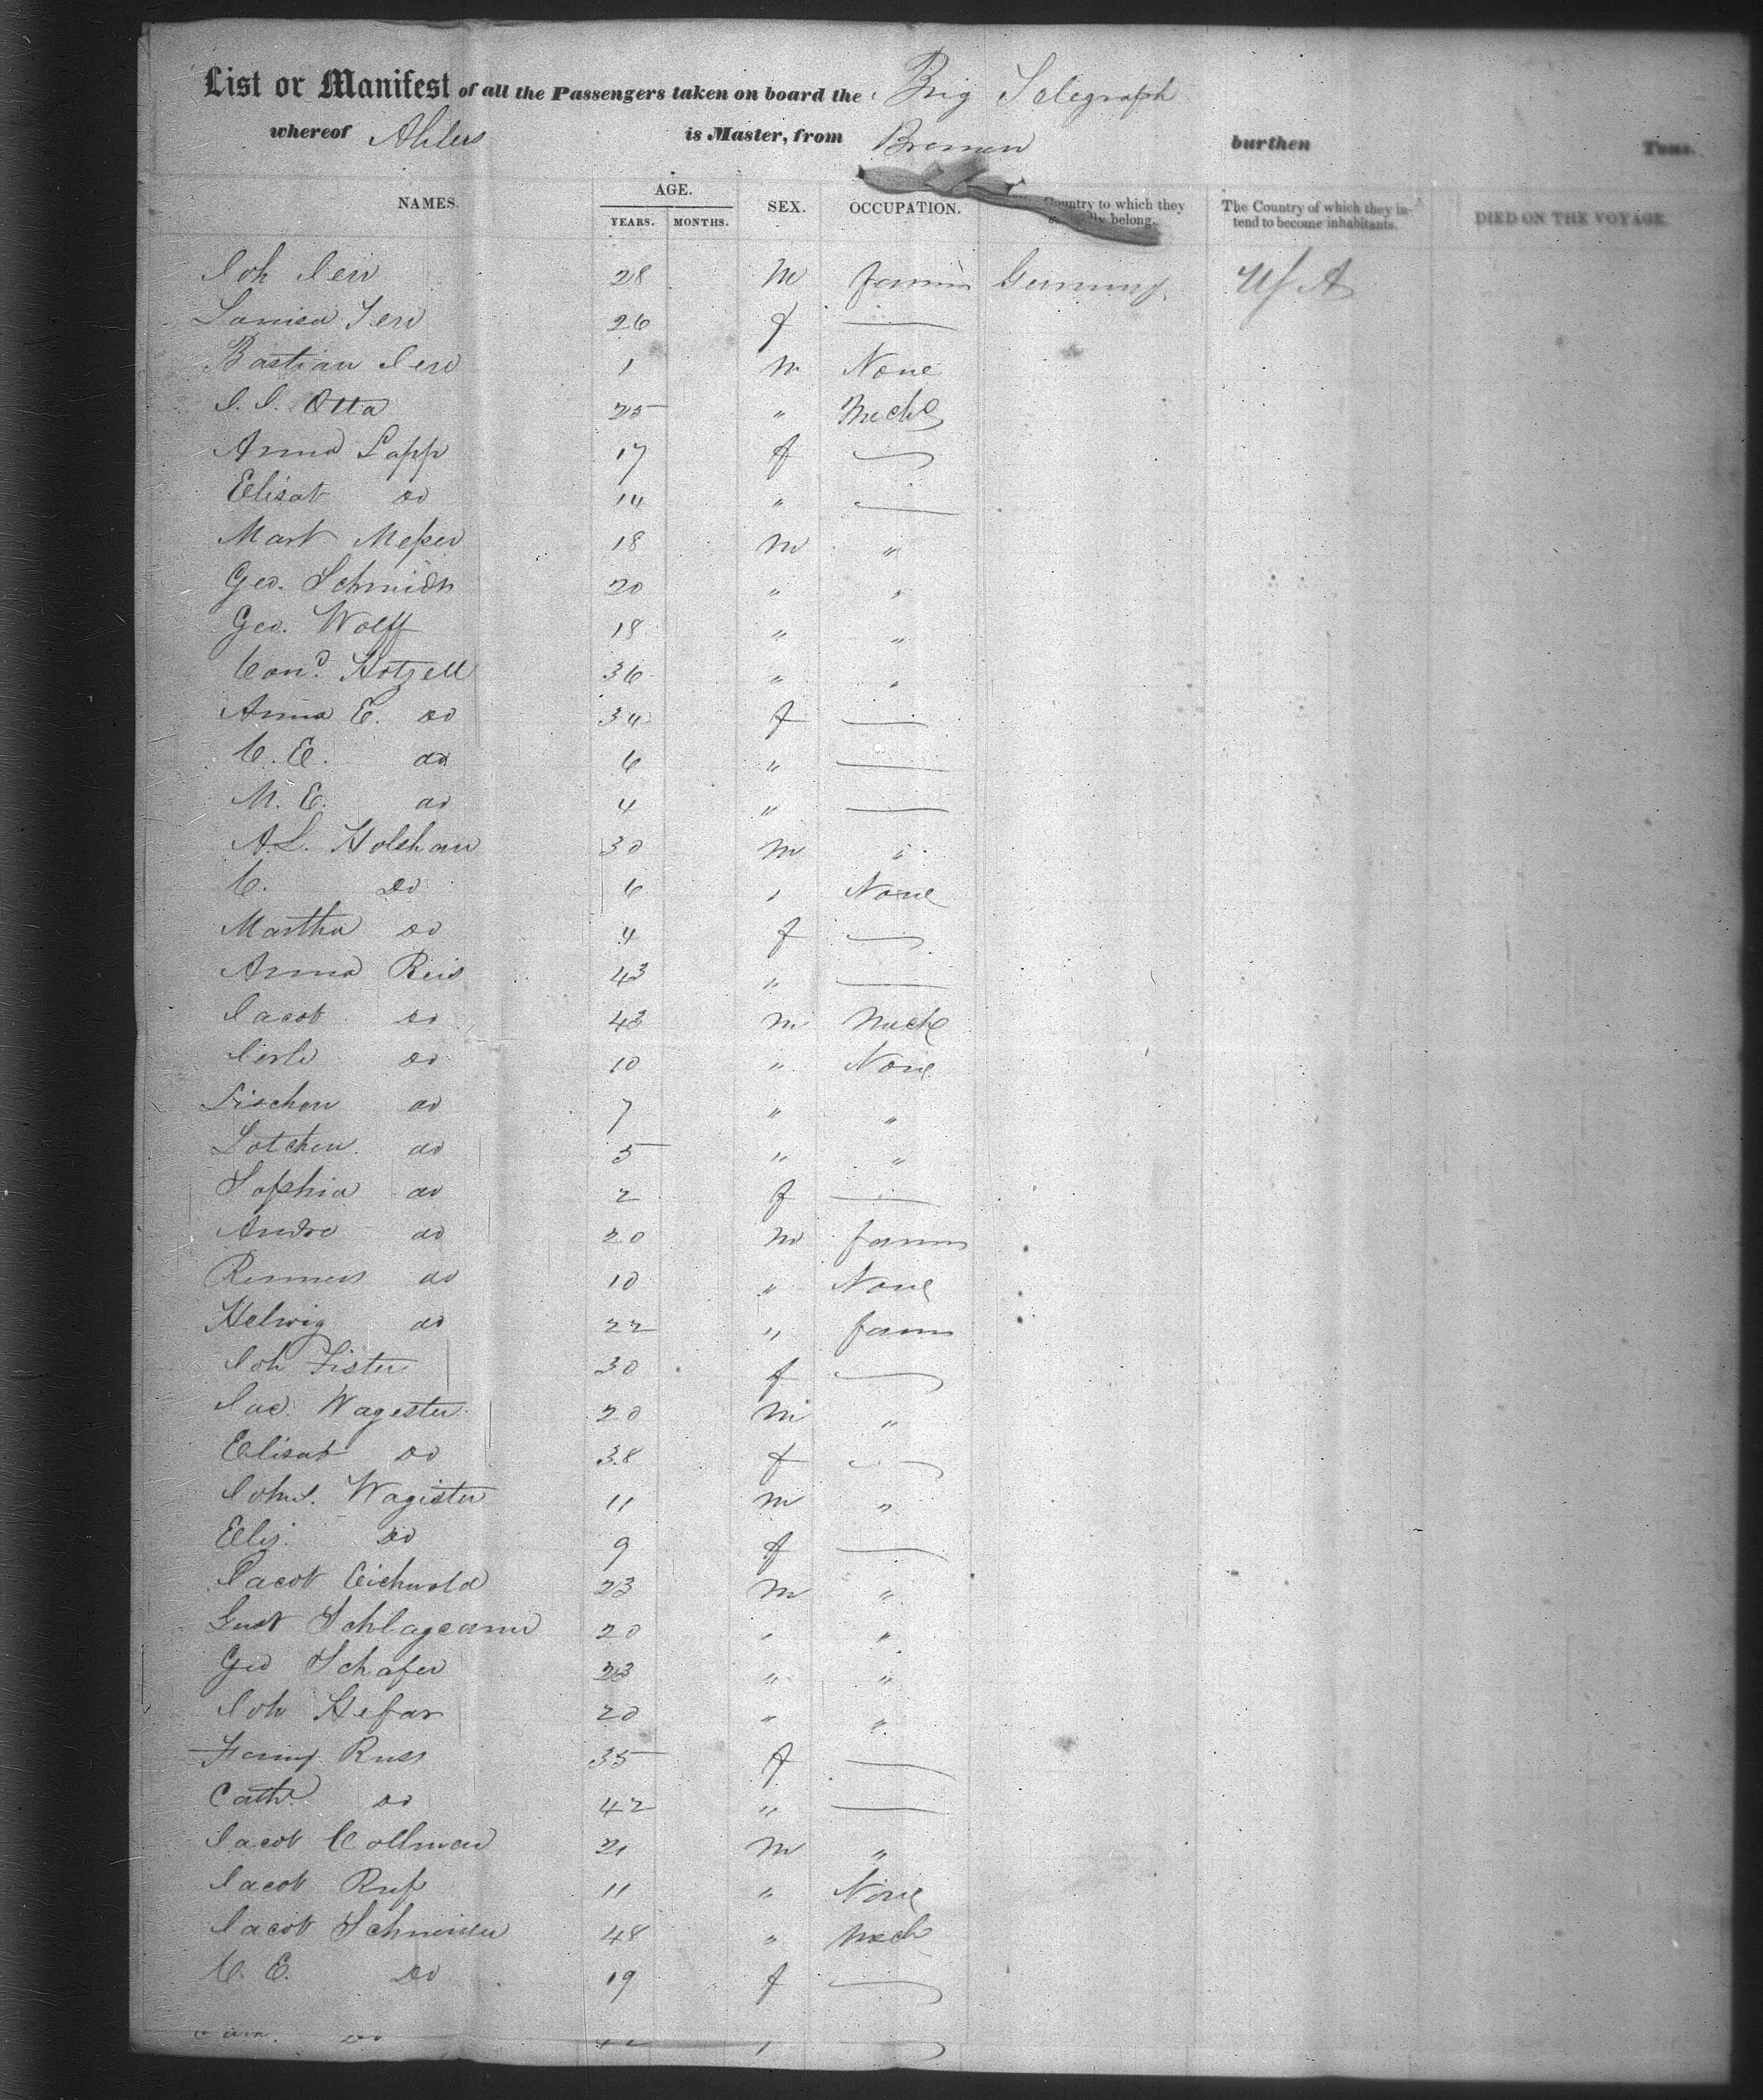 List or Manifest of all the Passengers taken on board the Brig Telegraph
whereof Ahlers is Master, from Bremen burthen Tons.
NAMES. AGE. YEARS. MONTHS. SEX. OCCUPATION. Country to which they belong. The Country of which they intend to become inhabitants. DIED ON THE VOYAGE
Joh 28 M farmer Germany USA
26 f —
Bastian 1 M None
J. J. Otta 25 " Mech
Anna Lapp 17 f —
Elisab do 14 " —
Mart Meßer 18 M "
Geo. Schmidt 20 " "
Geo. Wolff 18 " "
Cond. Hotzell 36 " "
Anna E. do 34 f —
C. E. do 6 " —
M. E. do 4 " —
A.L. Holshau 30 M "
C. Do 6 " None
Martha do 4 f —
Anna Reis 43 " —
Jacob do 43 M Mech
do 10 " None
Lischen do 7 " "
Lotchen do 5 " "
Sophia do 2 f —
Andre do 20 M farmer
do 10 " None
Helwig do 22 " farm
Joh Fister 30 f —
Jac. Wagester 20 M "
Elisab do 38 f —
Wagister 11 M "
Elis. do 9 f —
Jacob Eichwold 23 M "
Gust 20 " "
Geo Schafer 23 " "
Joh Hefar 20 " "
Fanny Russ 35 f —
Cath do 42 " —
Jacob Collman 21 M "
Jacob Ruß 11 " None
Jacob Schneider 48 " Mech
C. E. Do 19 f —
do